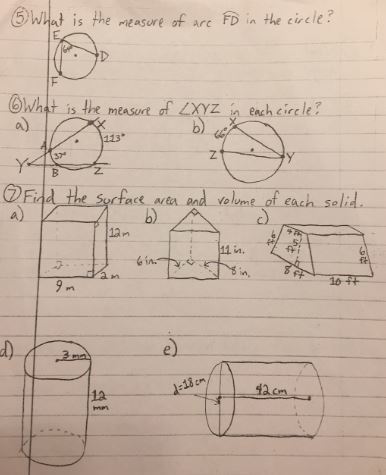 ⑤ What is the measure of arc FD in the circle?
E
D
F
⑥ What is the measure of ∠XYZ in each circle?
a)
X
113°
A
37°
Y
B
Z
b)
X
66°
Z
Y
⑦ Find the surface area and volume of each solid.
a)
12 m
2 m
9 m
b)
11 in.
6 in.
8 in.
c)
6 ft
4 ft
5 ft
6 ft
8 ft
10 ft
d)
3 mm
12 mm
e)
d=18cm
42 cm